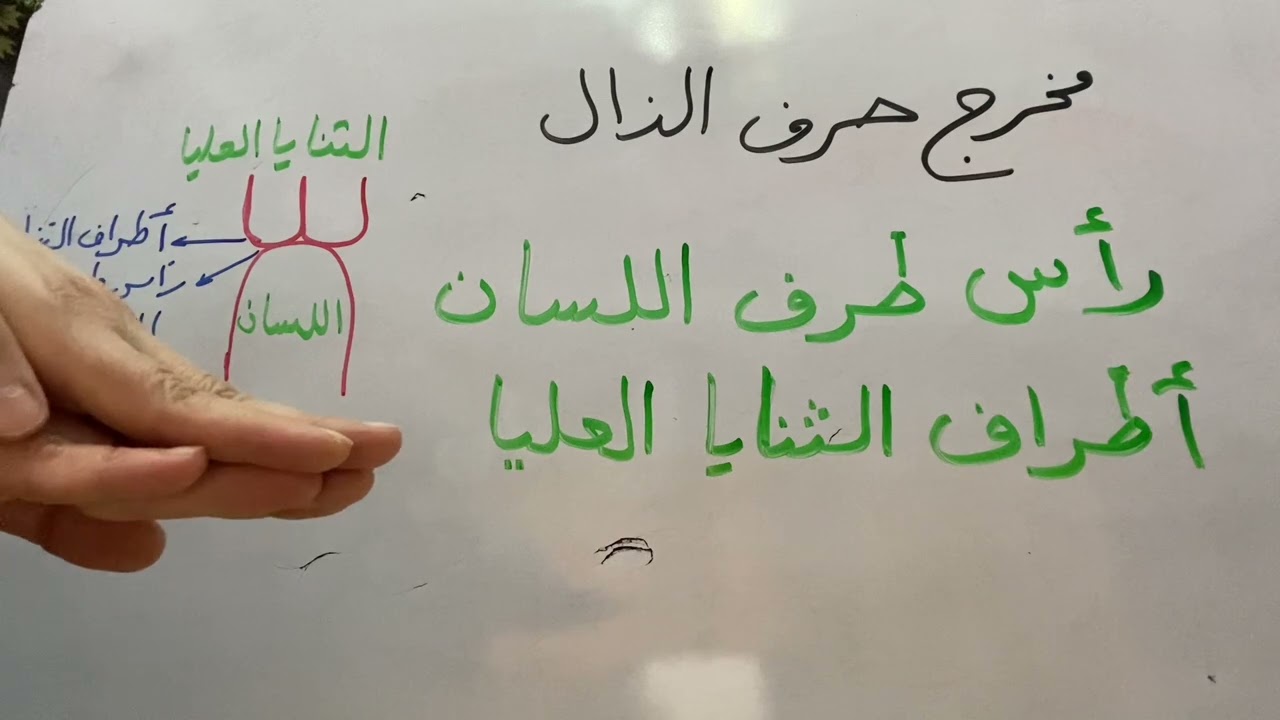 مخرج حرف الذال
رأس طرف اللسان
أطراف الثنايا العليا
الثنايا العليا
أطراف
رأس
اللسان